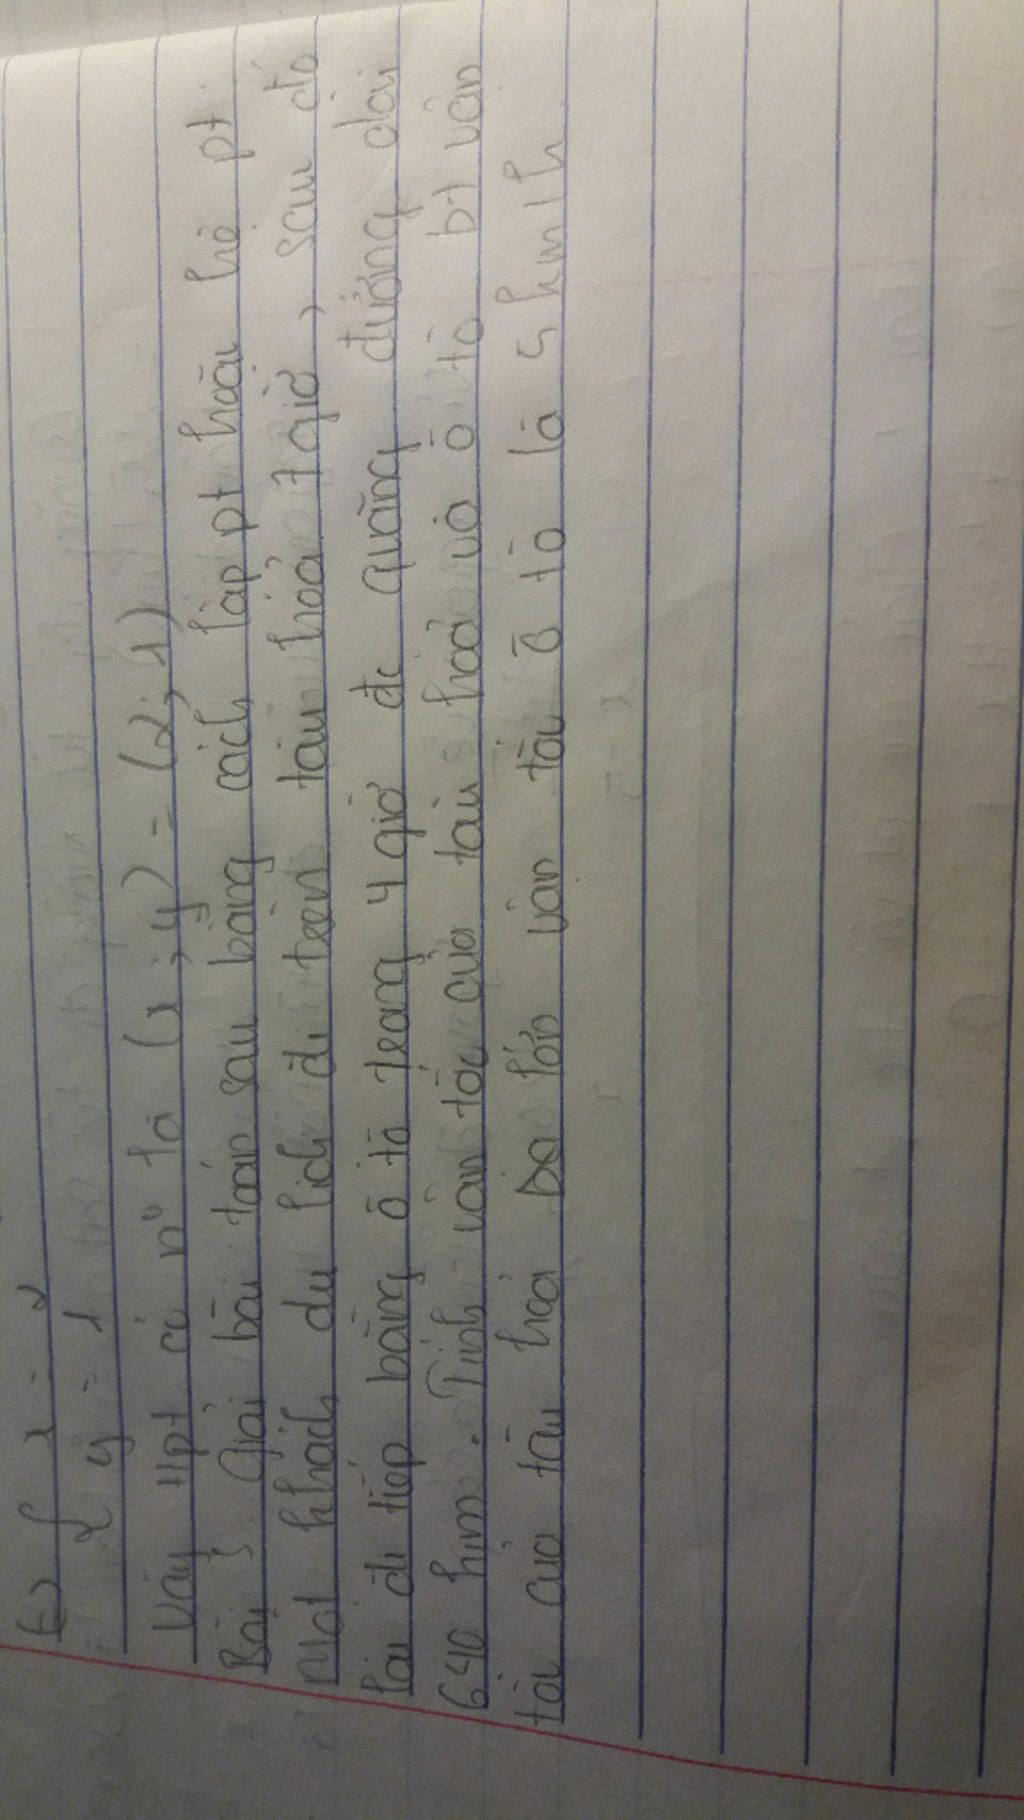 <=> { x = 2
{ y = 1
Vậy Hpt có nº là (x; y) = (2; 1)
Bài 3 Giải bài toán sau bằng cách lập pt hoặc hệ pt
Một khách du lịch đi trên tàu hỏa 7 giờ, sau đó
lại đi tiếp bằng ô tô trong 4 giờ đc quãng đường dài
640 km. Tính vận tốc của tàu hoả và ô tô bt vận
tốc của tàu hoả bo lớn vận tốc ô tô là 5 km/h